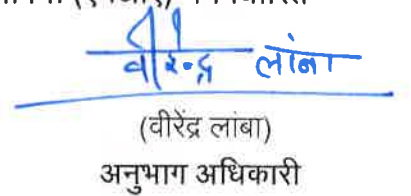 वीरेन्द्र लांबा
(वीरेंद्र लांबा)
अनुभाग अधिकारी